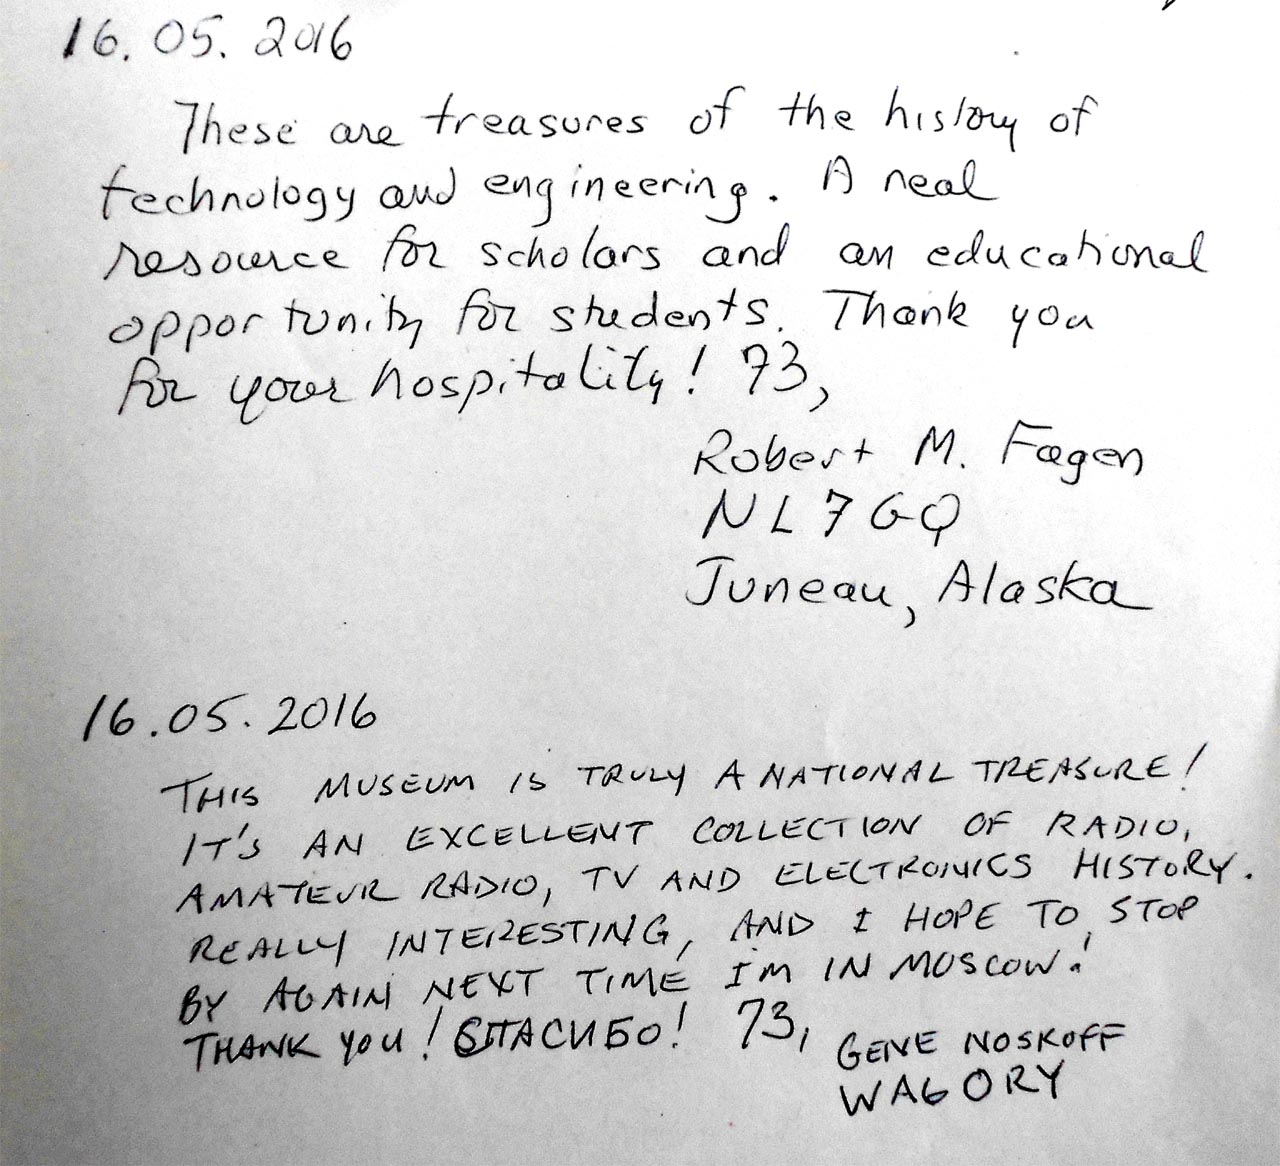 16.05.2016
These are treasures of the history of
technology and engineering. A real
resource for scholars and an educational
opportunity for students. Thank you
for your hospitality! 73,
Robert M. Fagen
NL7GQ
Juneau, Alaska
16.05.2016
THIS MUSEUM IS TRULY A NATIONAL TREASURE!
IT'S AN EXCELLENT COLLECTION OF RADIO,
AMATEUR RADIO, TV AND ELECTRONICS HISTORY.
REALLY INTERESTING, AND I HOPE TO STOP
BY AGAIN NEXT TIME I'M IN MOSCOW!
THANK YOU! СПАСИБО! 73,
GENE NOSKOFF
WA6ORY